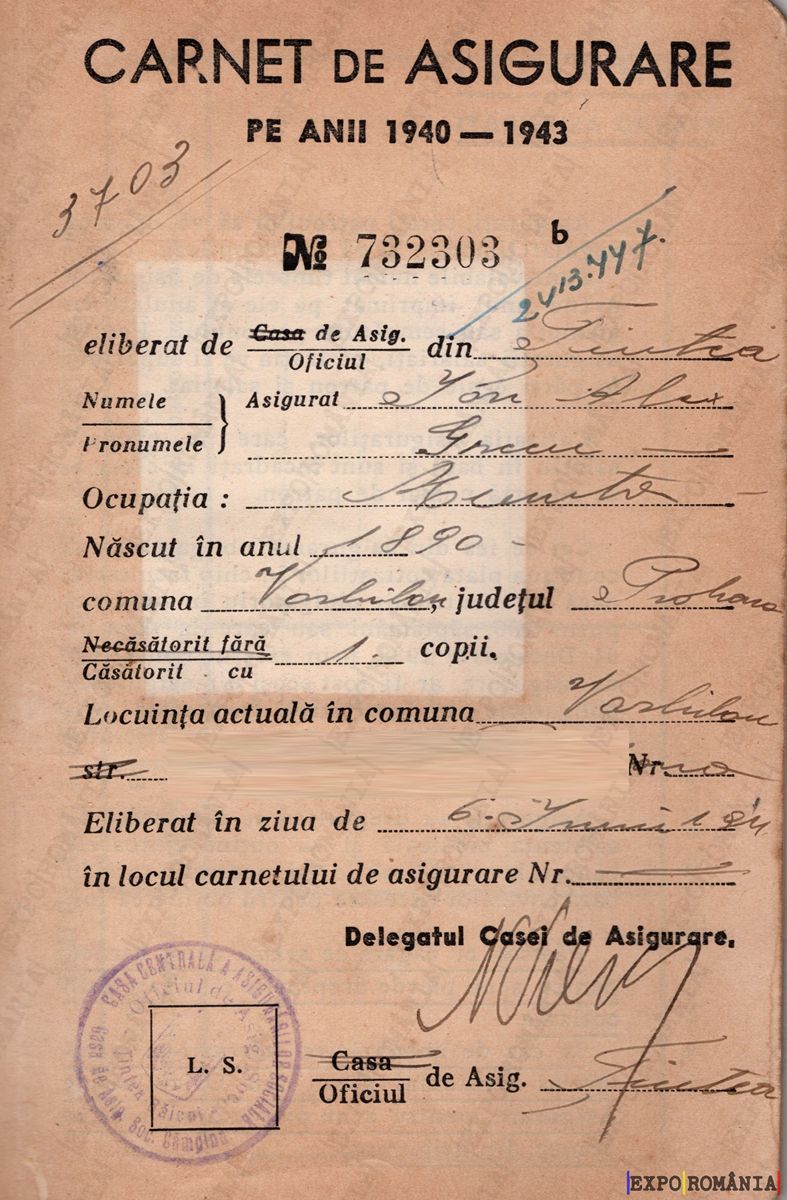 CARNET DE ASIGURARE
PE ANII 1940 — 1943
3703
№ 732303 b
2413.447.
eliberat de Casa de Asig. din Tintea
Oficiul
Numele Asigurat Ion Alex
Pronumele Grecu —
Ocupația :
Născut în anul 1890 -
comuna Varbilau, județul Prahova
Necăsătorit fără 1. copii.
Căsătorit cu
Locuința actuală în comuna Varbilau
str. Nr.
Eliberat în ziua de 6. Iunie
în locul carnetului de asigurare Nr. —
Delegatul Casei de Asigurare,
CASA CENTRALĂ A ASIGURĂRILOR SOCIALE
Oficiul de Asig.
Soc. Câmpina
L. S.
Casa de Asig. Tintea
Oficiul
EXPO ROMÂNIA